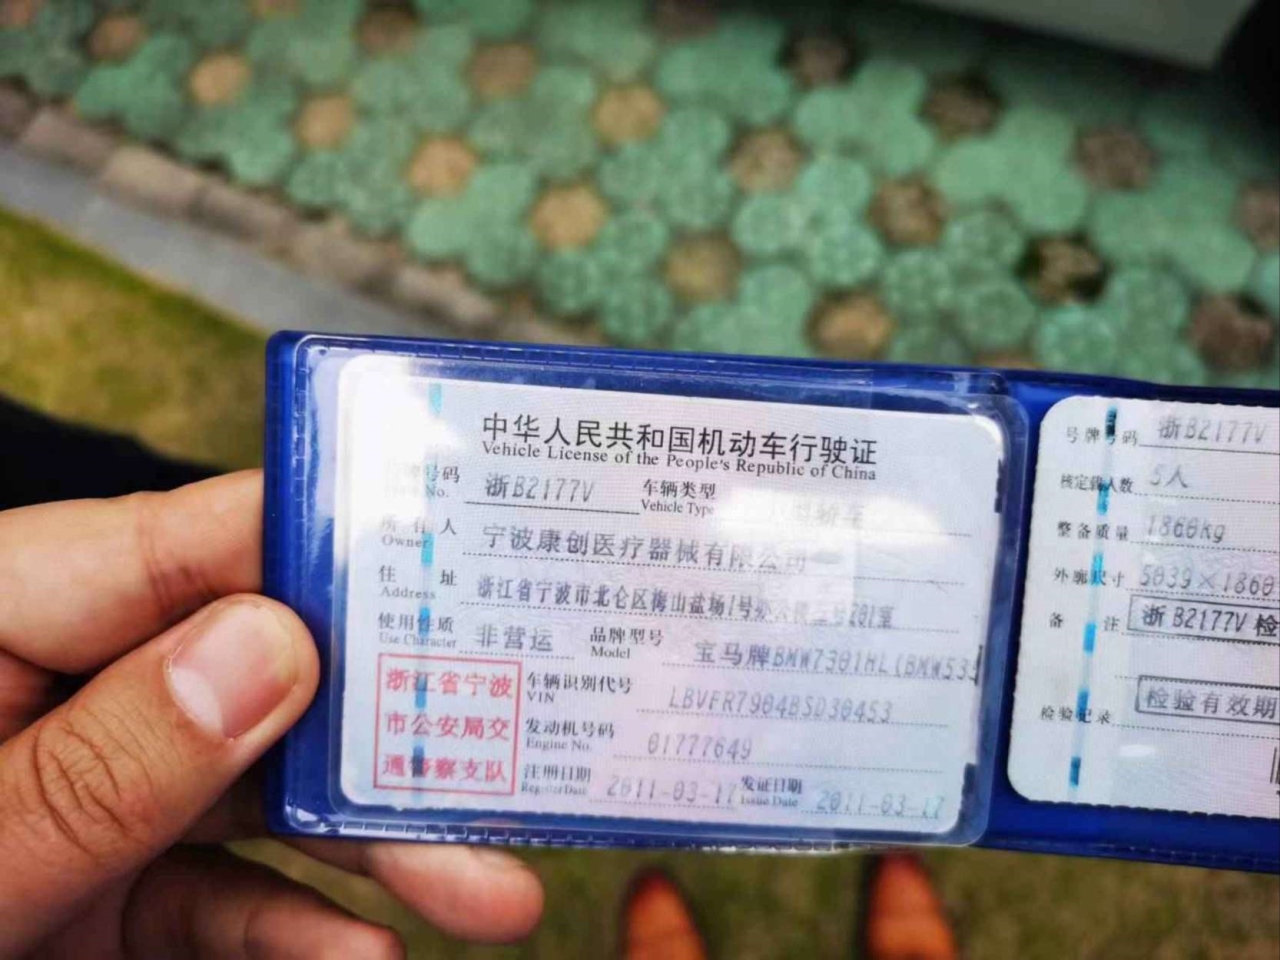 中华人民共和国机动车行驶证
Vehicle License of the People's Republic of China
号码 浙B2177V 车辆类型
No. Vehicle Type
所有人 宁波康创医疗器械有限公司
Owner
住址 浙江省宁波市北仑区梅山盐场1号办公楼三号701室
Address
使用性质 非营运 品牌型号 宝马牌BMW7301HL(BMW535
Use Character Model
浙江省宁波
市公安局交
通警察支队
车辆识别代号 LBVFR7904BSD30453
VIN
发动机号码 01777649
Engine No.
注册日期 2011-03-17 发证日期 2011-03-17
Register Date Issue Date
号牌号码 浙B2177V
核定载人数 5人
整备质量 1860kg
外廓尺寸 5039×1860
备注 浙B2177V 检
检验有效期
检验记录